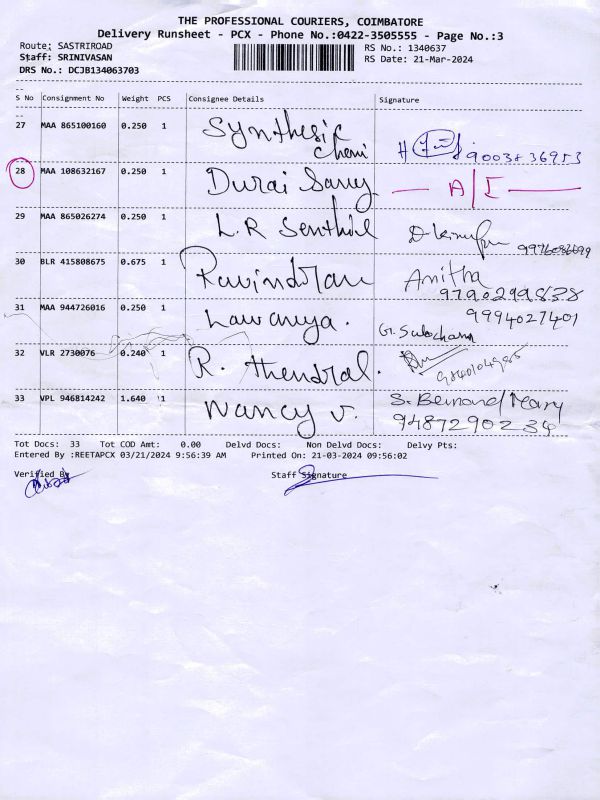 THE PROFESSIONAL COURIERS, COIMBATORE
Delivery Runsheet - PCX - Phone No.:0422-3505555 - Page No.:3
Route: SASTRIROAD RS No.: 1340637
Staff: SRINIVASAN RS Date: 21-Mar-2024
DRS No.: DCJB134063703
S No Consignment No Weight PCS Consignee Details Signature
27 MAA 865100160 0.250 1 Synthesic
Chemi 9003836953
28 MAA 108632167 0.250 1 Durai Samy A/I
29 MAA 865026274 0.250 1 L.R Senthil
30 BLR 415808675 0.675 1 Ravindran Anitha
9790299838
31 MAA 944726016 0.250 1 Lawanya. 9994027401
32 VLR 2730076 0.240 1 R. Thendral.
33 VPL 946814242 1.640 1 Nancy V. S. Bernard Mary
9487290234
Tot Docs: 33 Tot COD Amt: 0.00 Delvd Docs: Non Delvd Docs: Delvy Pts:
Entered By :REETAPCX 03/21/2024 9:56:39 AM Printed On: 21-03-2024 09:56:02
Verified By Staff Signature